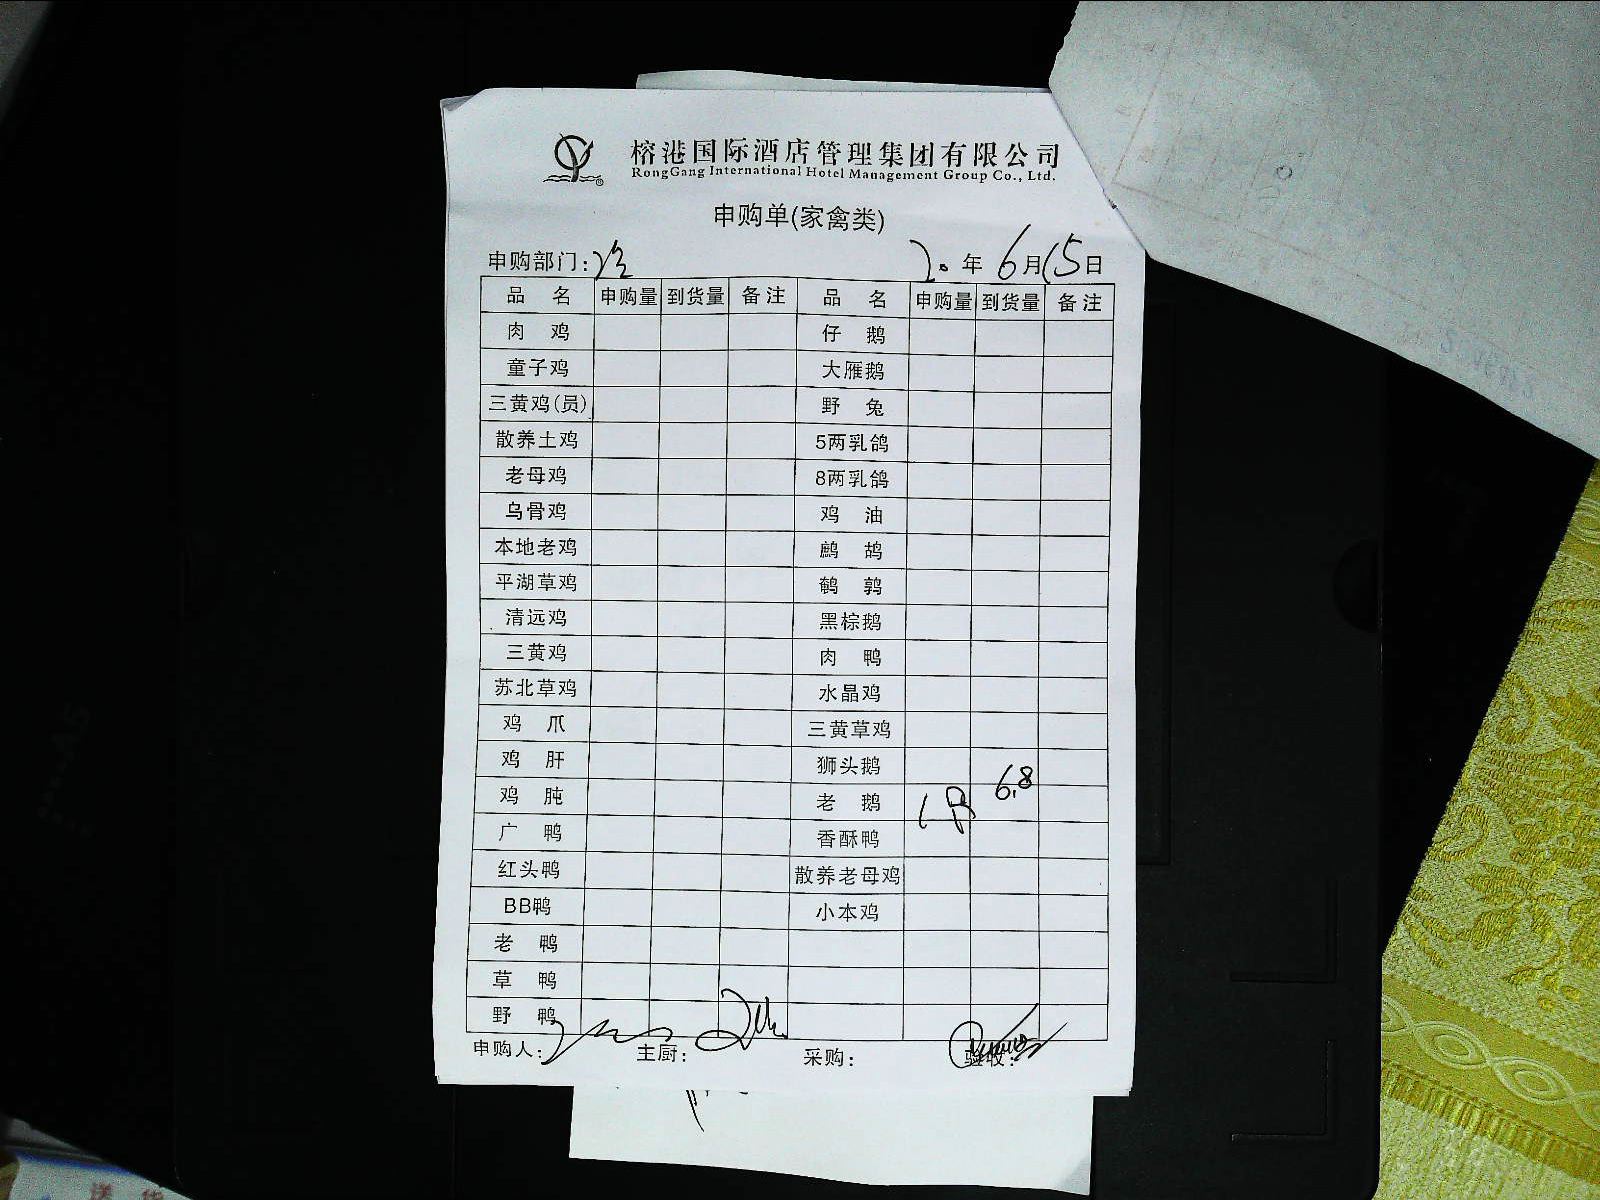 榕港国际酒店管理集团有限公司
RongGang International Hotel Management Group Co., Ltd.
申购单(家禽类)
申购部门: 20年6月15日
品 名 申购量 到货量 备注 品 名 申购量 到货量 备注
肉 鸡 仔 鹅
童子鸡 大雁鹅
三黄鸡(员) 野 兔
散养土鸡 5两乳鸽
老母鸡 8两乳鸽
乌骨鸡 鸡 油
本地老鸡 鹧 鸪
平湖草鸡 鹌 鹑
清远鸡 黑棕鹅
三黄鸡 肉 鸭
苏北草鸡 水晶鸡
鸡 爪 三黄草鸡
鸡 肝 狮头鹅
鸡 肫 老 鹅 1只 6.8
广 鸭 香酥鸭
红头鸭 散养老母鸡
BB鸭 小本鸡
老 鸭
草 鸭
野 鸭
申购人: 主厨: 采购: 验收:
送 货